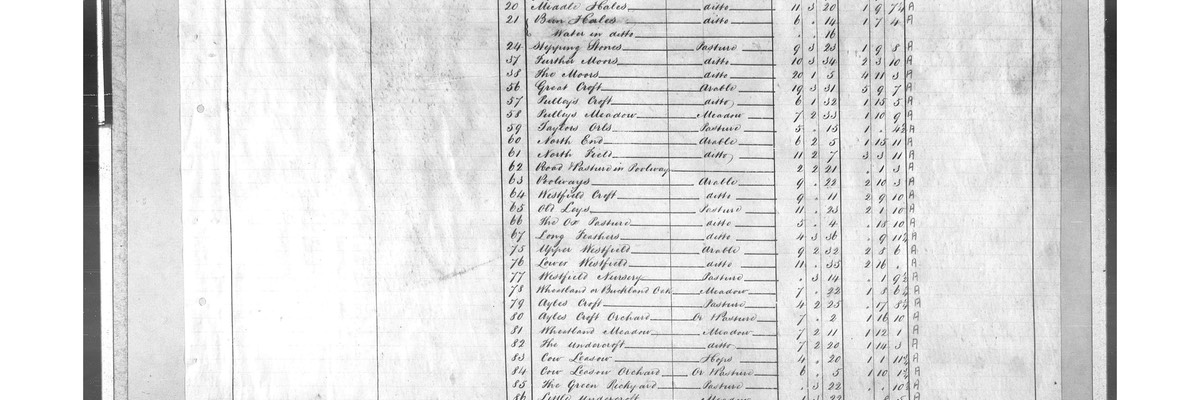 20 Meadle Hales ditto 11 3 20 1 9 7½ A
21 Bean Hales ditto 6 . 14 1 7 4 A
Water in ditto . . 16
24 Stepping Stones Pasture 9 3 23 1 9 8 A
37 Further Moors ditto 10 3 34 2 3 10 A
38 The Moors ditto 20 1 5 4 11 3 A
56 Great Croft Arable 19 3 31 5 9 7 A
57 Pulleys Croft ditto 6 1 32 1 15 5 A
58 Pulleys Meadow Meadow 7 2 33 1 10 9 A
59 Taylors Orls Pasture 5 . 15 1 . 4½ A
60 North End Arable 6 2 5 1 15 11 A
61 North Field ditto 11 2 7 3 3 11 A
62 Road & Pasture in Poolway 2 2 21 . 1 3 A
63 Poolways Arable 9 . 22 2 10 3 A
64 Westfield Croft ditto 9 . 11 2 9 10 A
65 Old Leys Pasture 11 . 23 2 1 10 A
66 The Ox Pasture ditto 5 . 4 . 18 10 A
67 Long Feathers ditto 4 3 36 . 9 11½ A
75 Upper Westfield Arable 9 2 32 2 8 6 A
76 Lower Westfield ditto 11 . 35 2 16 . A
77 Westfield Nursery Pasture . 3 14 . 1 9½ A
78 Wheatland or Buckland Oak Meadow 7 . 22 1 5 6½ A
79 Ayles Croft Pasture 4 2 25 . 17 8½ A
80 Ayles Croft Orchard Or & Pasture 7 . 2 1 16 10 A
81 Wheatland Meadow Meadow 7 2 11 1 12 1 A
82 The Undercroft ditto 7 2 20 1 14 3 A
83 Cow Leasow Hops 4 . 20 1 1 11½ A
84 Cow Leasow Orchard Or & Pasture 6 . 5 1 10 1½ A
85 The Green Rickyard Pasture . 3 22 . . 10½ A
86 Little Undercroft Meadow 1 3 22